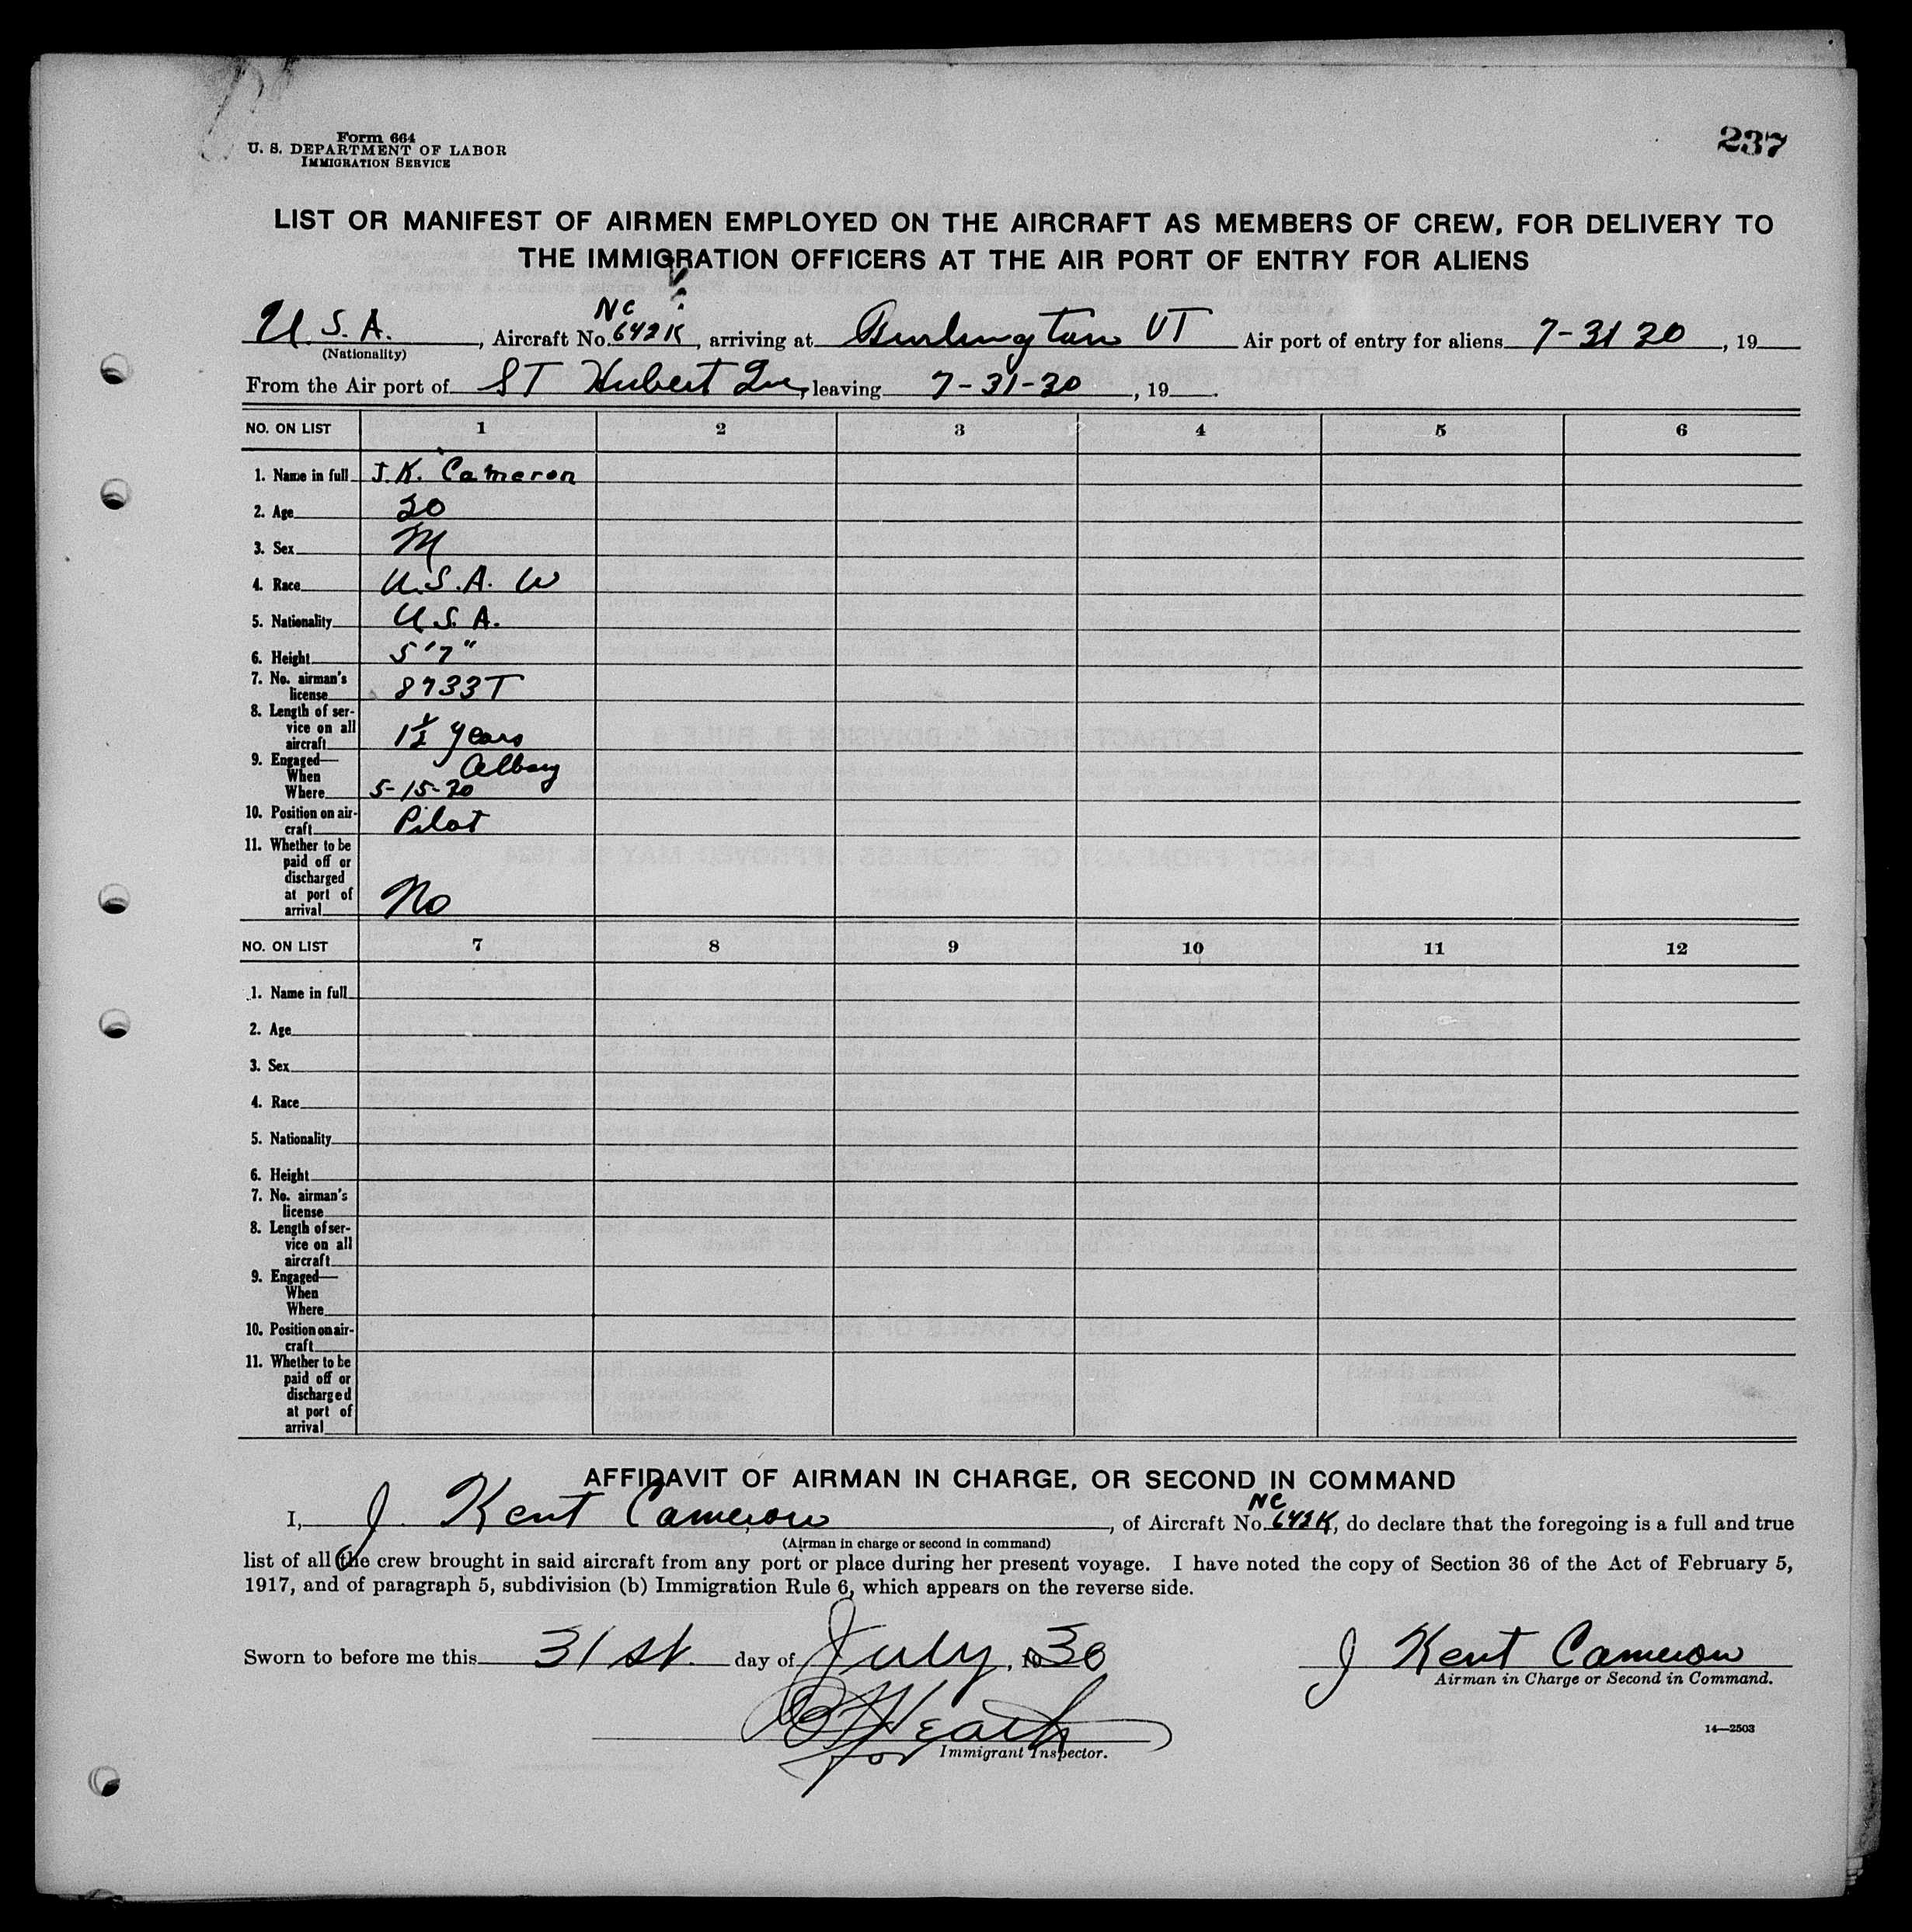 Form 664
U. S. DEPARTMENT OF LABOR
IMMIGRATION SERVICE
237
LIST OR MANIFEST OF AIRMEN EMPLOYED ON THE AIRCRAFT AS MEMBERS OF CREW, FOR DELIVERY TO
THE IMMIGRATION OFFICERS AT THE AIR PORT OF ENTRY FOR ALIENS
U.S.A. , Aircraft No. NC 642K, arriving at Burlington VT Air port of entry for aliens 7-31 30, 19
(Nationality)
From the Air port of ST Hubert Que, leaving 7-31-30, 19 .
NO. ON LIST 1 2 3 4 5 6
1. Name in full J.K. Cameron
2. Age 20
3. Sex M
4. Race U.S.A. W
5. Nationality U.S.A.
6. Height 5'7"
7. No. airman's
license 8733T
8. Length of ser-
vice on all
aircraft 1½ years
9. Engaged— Albany
When
Where 5-15-30
10. Position on air-
craft Pilot
11. Whether to be
paid off or
discharged
at port of
arrival No
NO. ON LIST 7 8 9 10 11 12
1. Name in full
2. Age
3. Sex
4. Race
5. Nationality
6. Height
7. No. airman's
license
8. Length of ser-
vice on all
aircraft
9. Engaged—
When
Where
10. Position on air-
craft
11. Whether to be
paid off or
discharged
at port of
arrival
AFFIDAVIT OF AIRMAN IN CHARGE, OR SECOND IN COMMAND
I, J. Kent Cameron, of Aircraft No. NC 642K, do declare that the foregoing is a full and true
(Airman in charge or second in command)
list of all the crew brought in said aircraft from any port or place during her present voyage. I have noted the copy of Section 36 of the Act of February 5,
1917, and of paragraph 5, subdivision (b) Immigration Rule 6, which appears on the reverse side.
Sworn to before me this 31st day of July, 1930 J Kent Cameron
Airman in Charge or Second in Command.
Heath
for Immigrant Inspector.
14—2503